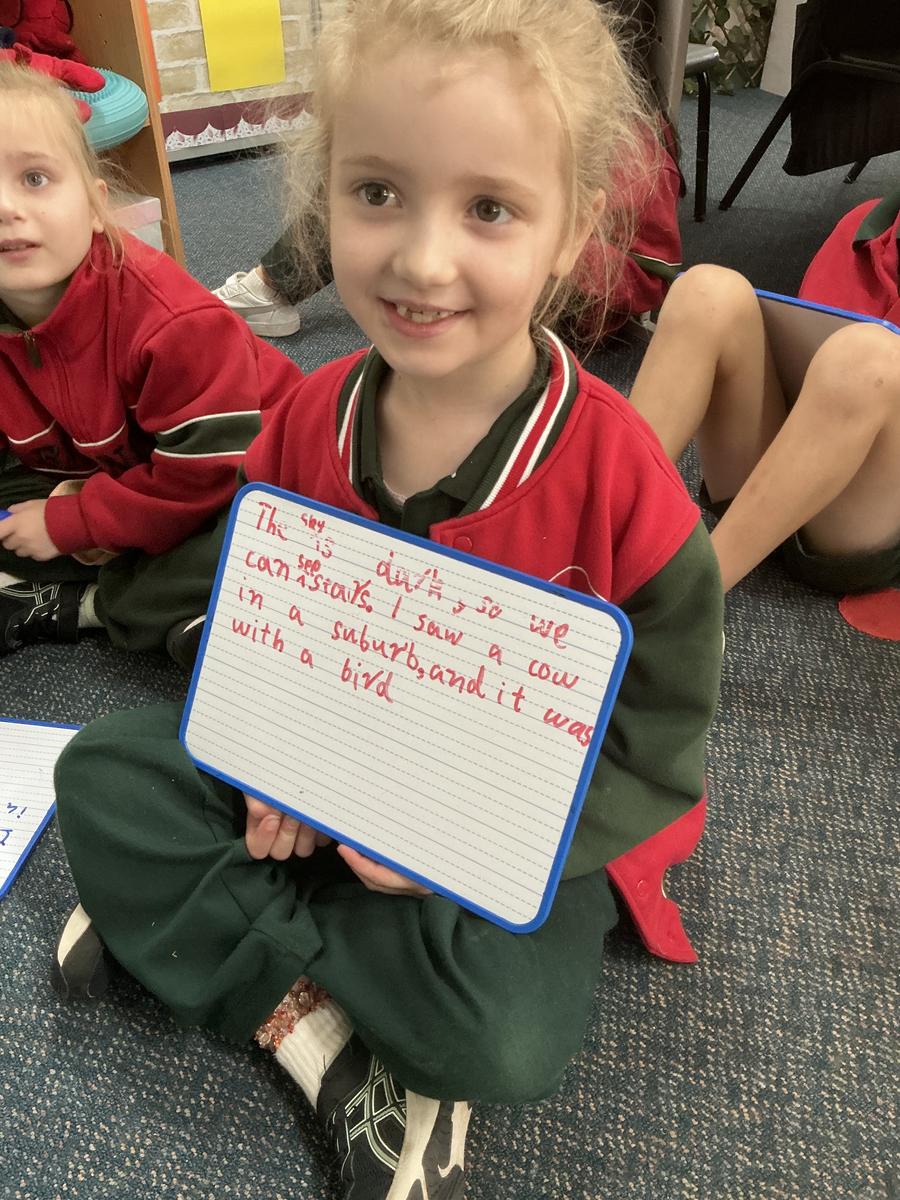 The sky is dark, so we
can see stars. I saw a cow
in a suburb, and it was
with a bird